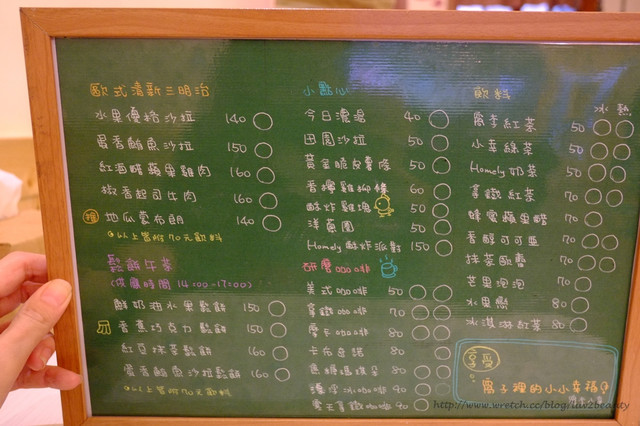 歐式清新三明治
水果優格沙拉 140
蛋香鮪魚沙拉 150
紅酒醋蘋果雞肉 160
椒香起司牛肉 160
地瓜蒙布朗 140
以上皆附70元飲料
鬆餅午茶
(供應時間 14:00-17:00)
鮮奶油水果鬆餅 150
香蕉巧克力鬆餅 150
紅豆抹茶鬆餅 160
蛋香鮪魚沙拉鬆餅 160
以上皆附70元飲料
小點心
今日濃湯 40
田園沙拉 50
黃金脆皮薯條 50
香檸雞柳條 60
酥炸雞塊 50
洋蔥圈 50
Homely酥炸派對 150
研磨咖啡
美式咖啡 50
拿鐵咖啡 70
摩卡咖啡 80
卡布奇諾 80
焦糖瑪琪朵 80
漂浮冰咖啡 90
蜜王拿鐵咖啡 90
飲料
冰 熱
窩李紅茶 50
小幸綠茶 50
Homely奶茶 50
拿鐵紅茶 70
蜂蜜蘋果醋 70
香醇可可亞 70
抹茶歐蕾 70
芒果泡泡 70
水果戀 80
冰淇淋紅茶 80
享受
窩子裡的小小幸福
http://www.wretch.cc/blog/luv2beauty